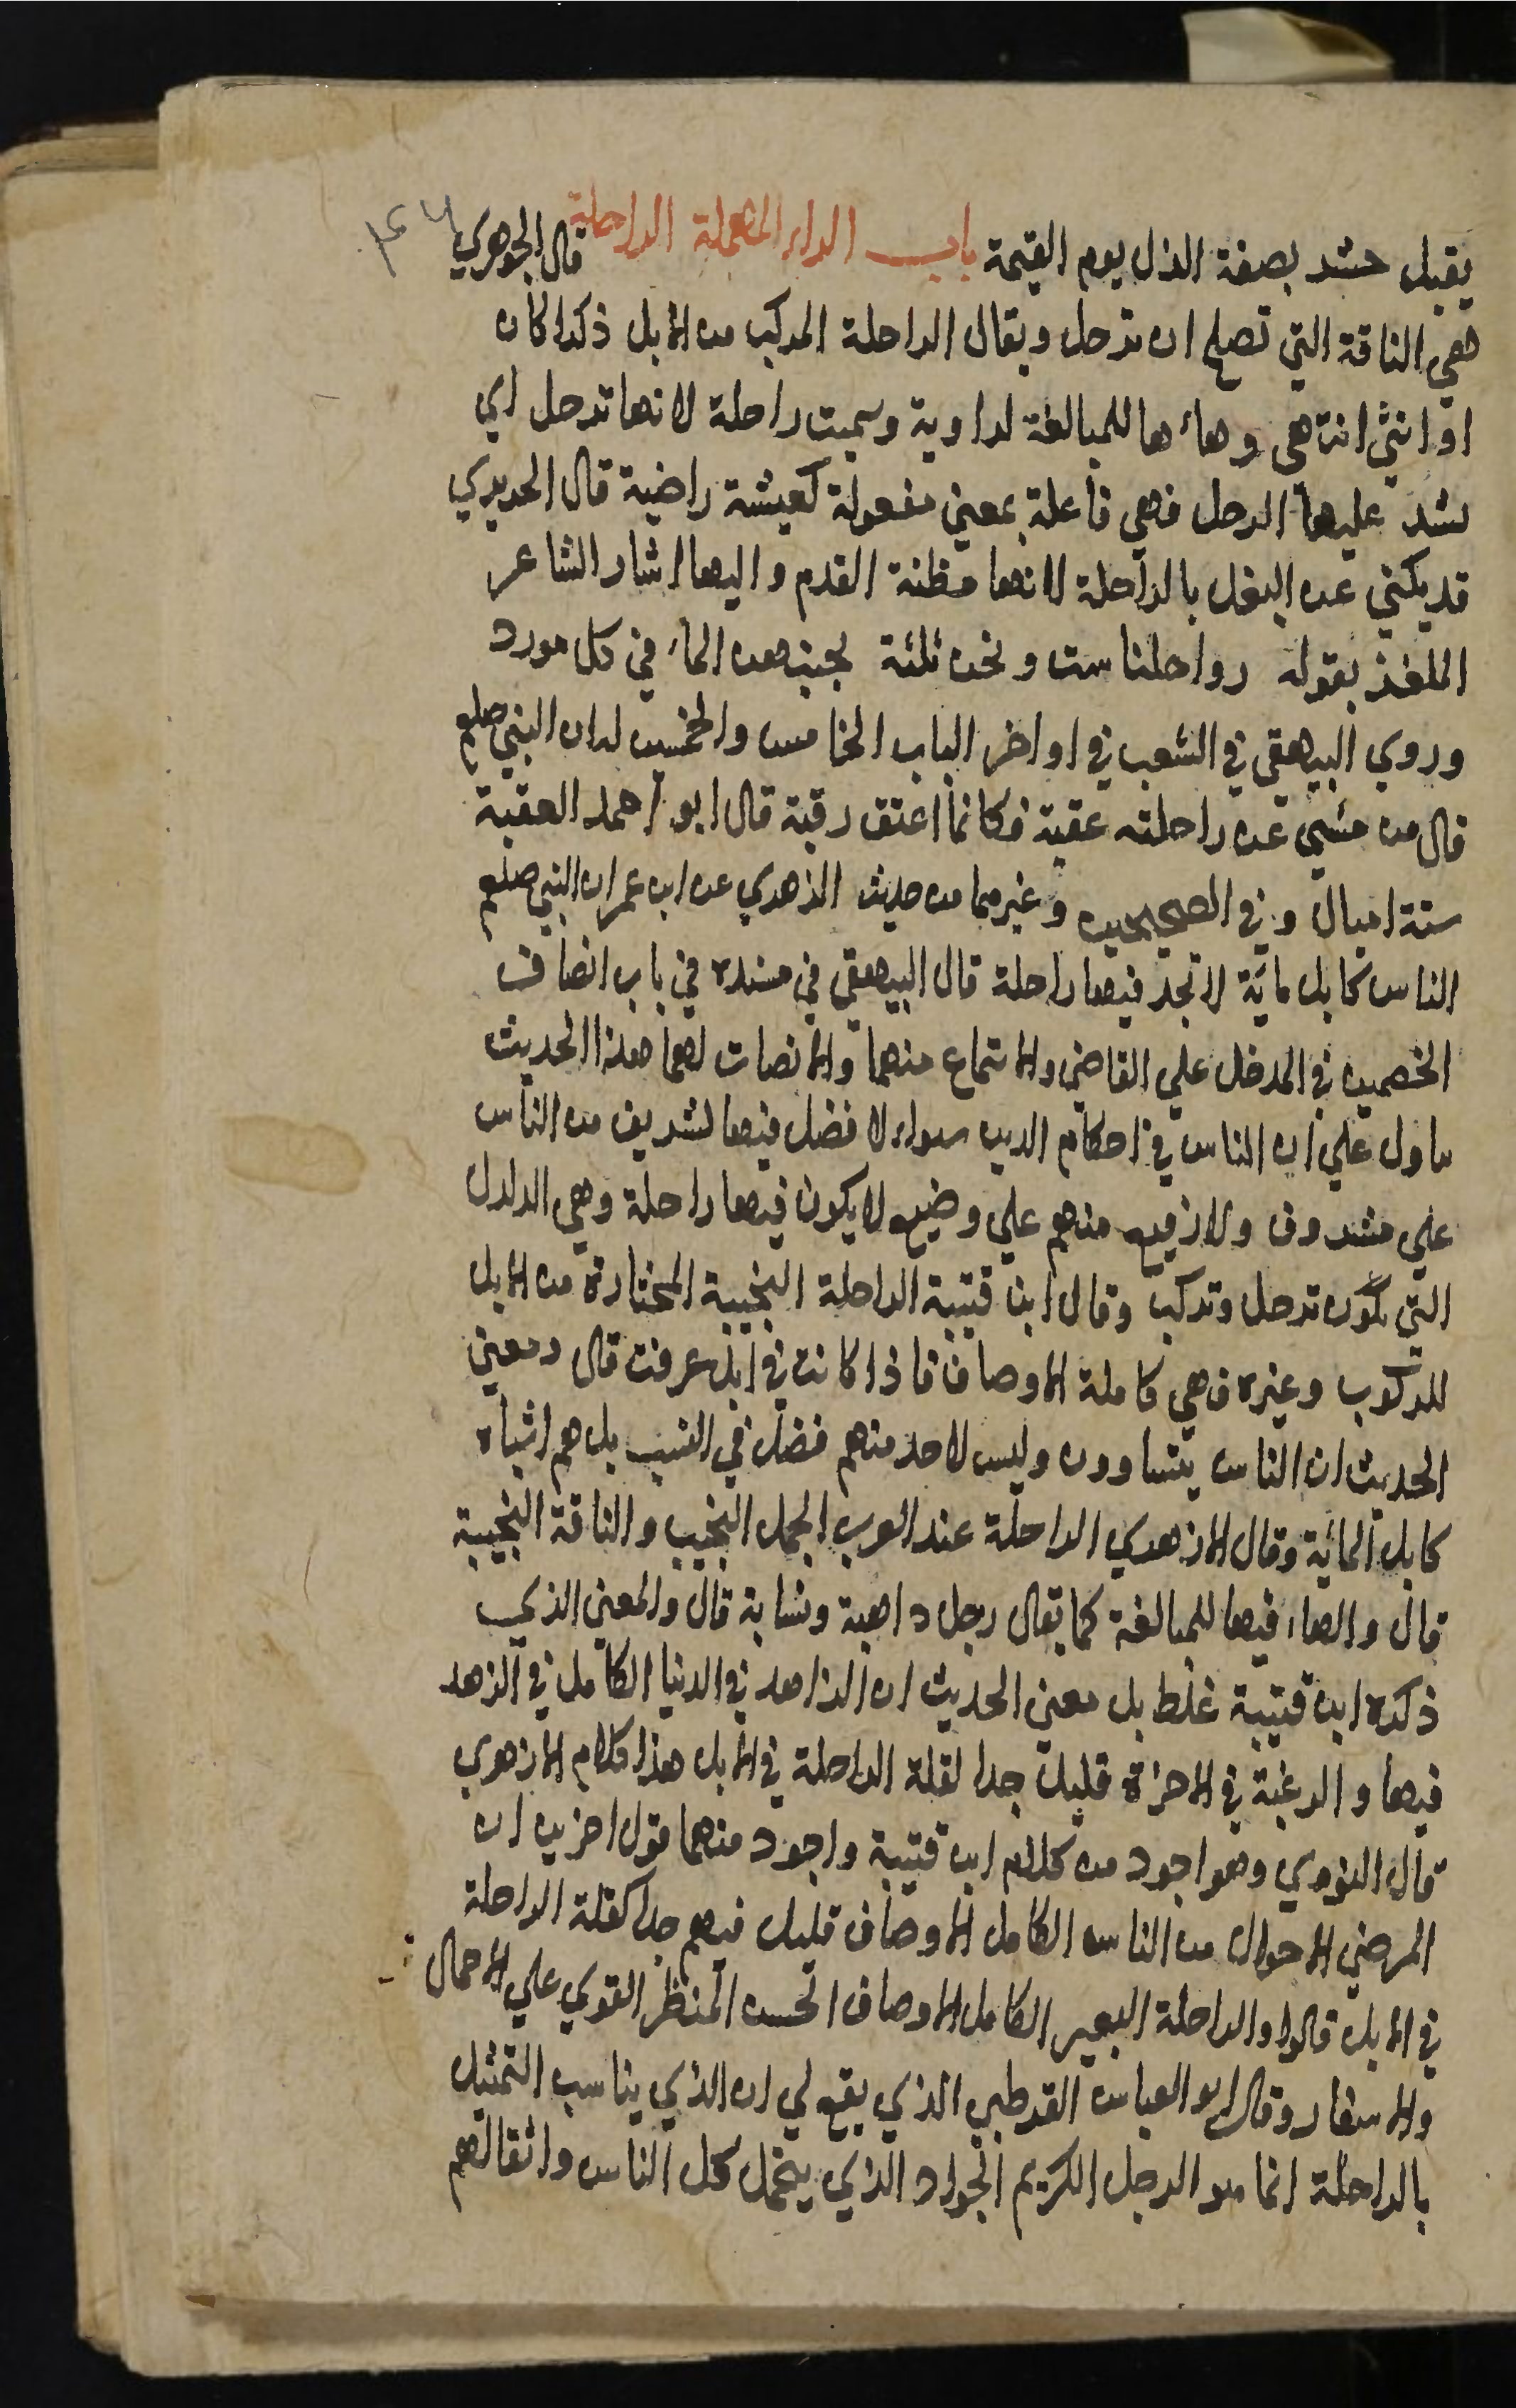 يقبل حشر بصفة الذل يوم القيمة باب الراء المهملة الراحلة قال الجوهري
هي الناقة التي تصلح ان ترحل ويقال الراحلة المركب من الابل ذكرا كان
او انثي انتهي وهاءها للمبالغة لداوية وسميت راحلة لانها ترحل اي
يشد عليها الرحل فهي فاعلة بمعني مفعولة كعيشة راضية قال الحريري
قد يكني عن النعل بالراحلة لانها مظنة القدم واليها اشار الشاعر
الملغز بقوله رواحلنا ست ونحن ثلثة نجنبهن الماء في كل مورد
وروي البيهقي في الشعب في اواخر الباب الخامس والخمسين ان النبي صلعم
قال من مشي عن راحلته عقبة فكانما اعتق رقبة قال ابو احمد العقبة
ستة اميال وفي الصحيحين وغيرهما من حديث الزهري عن ابن عمر ان النبي صلعم
الناس كابل مائة لا تجد فيها راحلة قال البيهقي في مسنده في باب انصاف
الخصمين في المدخل علي القاضي والاستماع منهما والانصات لهما هذا الحديث
يتاول علي ان الناس في احكام الدين سواء لا فضل فيها لشريف من الناس
علي مشروف ولا رفيع منهم علي وضيع لا يكون فيها راحلة وهي الدلدل
التي يكون ترحل وتركب وقال ابن قتيبة الراحلة النجيبة المختارة من الابل
للركوب وغيره فهي كاملة الاوصاف فاذا كانت في ابل عرفت قال ومعني
الحديث ان الناس يتساوون وليس لاحد منهم فضل في النسب بل هم اشباه
كابل المائية وقال الازهري الراحلة عند العرب الجمل النجيب والناقة النجيبة
قال والهاء فيها للمبالغة كما يقال رجل داهية ونسابة قال والمعني الذي
ذكره ابن قتيبة غلط بل معني الحديث ان الزاهد في الدنيا الكامل في الزهد
فيها والرغبة في الاخرة قليل جدا لقلة الراحلة في الابل هذا كلام الازهري
قال النووي وهو اجود من كلام ابن قتيبة واجود منهما قول اخرين ان
المرضي الاحوال من الناس الكامل الاوصاف قليل فيهم جدا كقلة الراحلة
في الابل قالوا والراحلة البعير الكامل الاوصاف الحسن المنظر القوي علي الاحمال
والاسفار وقال ابو العباس القرطبي الذي يقع لي ان الذي يناسب التمثيل
بالراحلة انما هو الرجل الكريم الجواد الذي يتحمل كل الناس واثقالهم